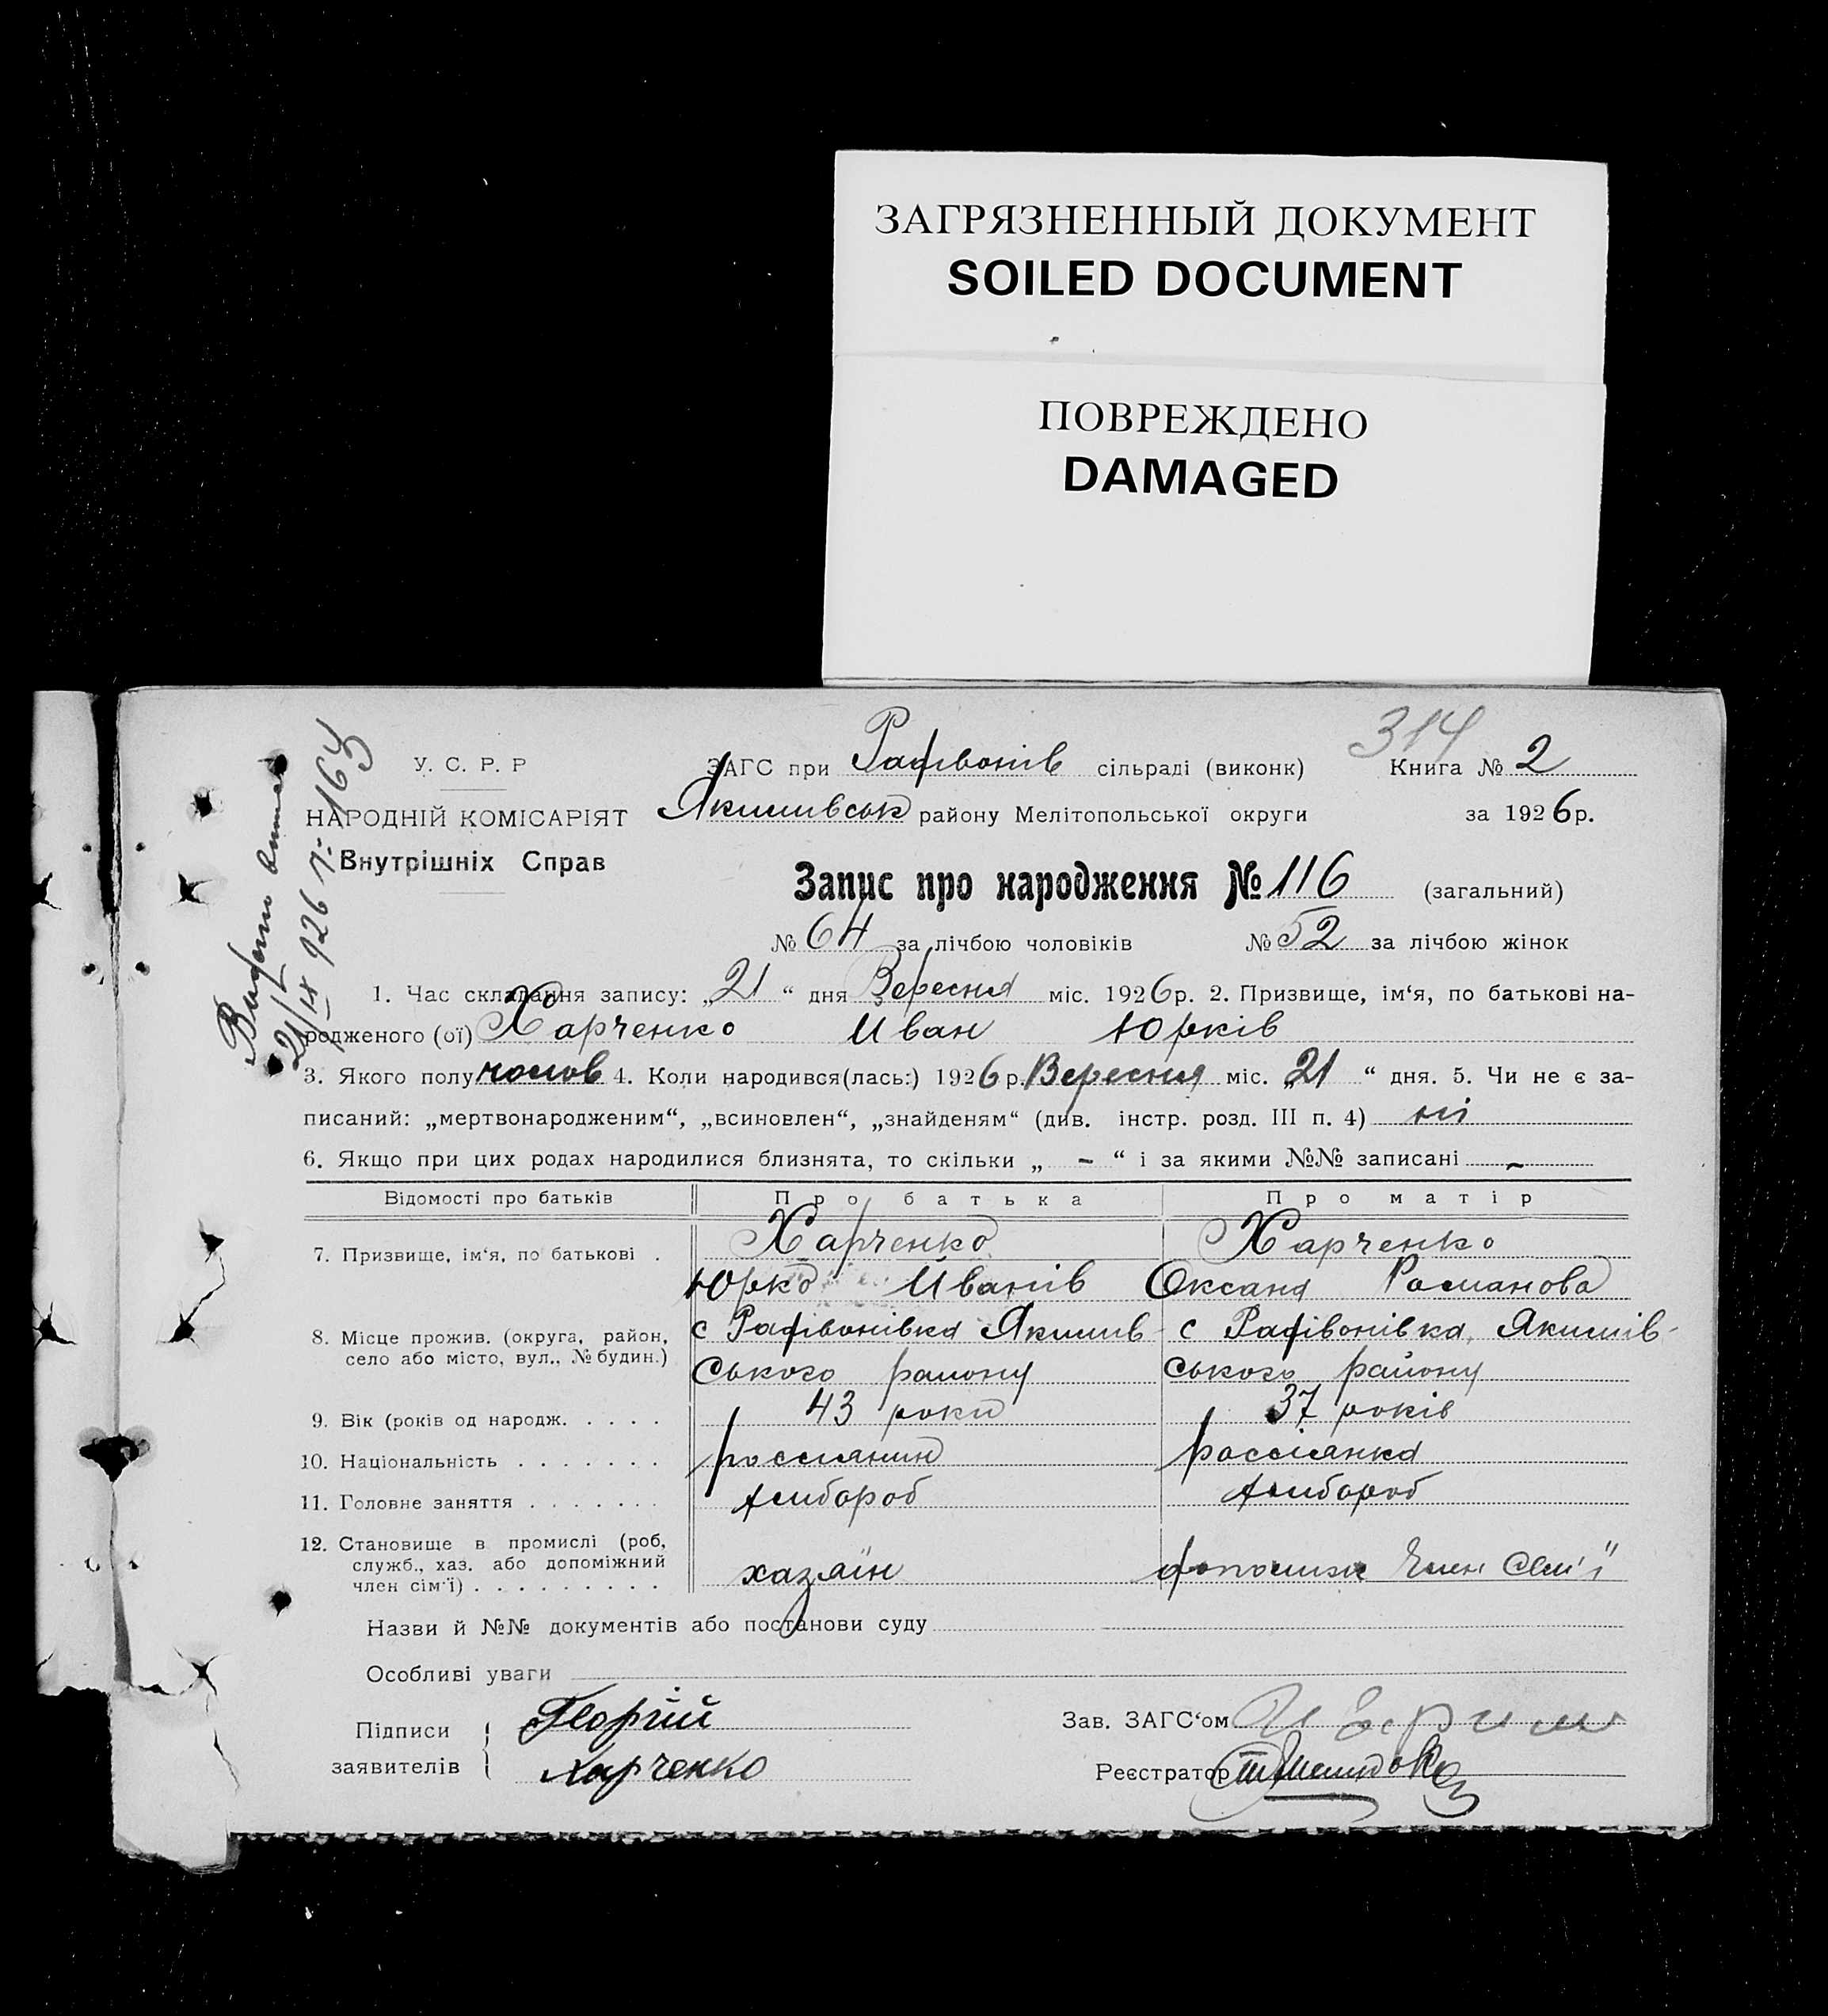 ЗАГРЯЗНЕННЫЙ ДОКУМЕНТ
SOILED DOCUMENT
ПОВРЕЖДЕНО
DAMAGED
314
У. С. Р. Р
ЗАГС при Радівонів сільраді (виконк) Книга № 2
НАРОДНІЙ КОМІСАРІЯТ
Якимівськ району Мелітопольської округи за 1926 р.
Внутрішніх Справ
Запис про народження № 116 (загальний)
№ 64 за лічбою чоловіків № 52 за лічбою жінок
21/IX 926 № 164
1. Час складання запису: „21“ дня Вересня міс. 1926 р. 2. Призвище, ім‘я, по батькові на-
родженого (ої) Харченко Иван Юрків
3. Якого полу чолов 4. Коли народився(лась:) 1926 р. Вересня міс. „21“ дня. 5. Чи не є за-
писаний: „мертвонародженим“, „всиновлен“, „знайденям“ (див. інстр. розд. III п. 4) ні
6. Якщо при цих родах народилися близнята, то скільки „ – “ і за якими №№ записані –
Відомості про батьків Про батька Про матір
7. Призвище, ім‘я, по батькові . Харченко Харченко
Юрко Иванів Оксана Романова
8. Місце прожив. (округа, район, село або місто, вул., № будин.) с Радівонівка Якимів- с Радівонівка, Якимів-
ського району ського району
9. Вік (років од народж. . . . . 43 роки 37 років
10. Національність . . . . . . . россиянин россіянка
11. Головне заняття . . . . . . . хлібороб хлібороб
12. Становище в промислі (роб, служб., хаз. або допоміжний член сім‘ї) . . . . . . . . . хазяїн допоміж член сем'ї
Назви й №№ документів або постанови суду
Особливі уваги
Підписи заявителів { Георгий
Харченко
Зав. ЗАГС‘ом
Реєстратор